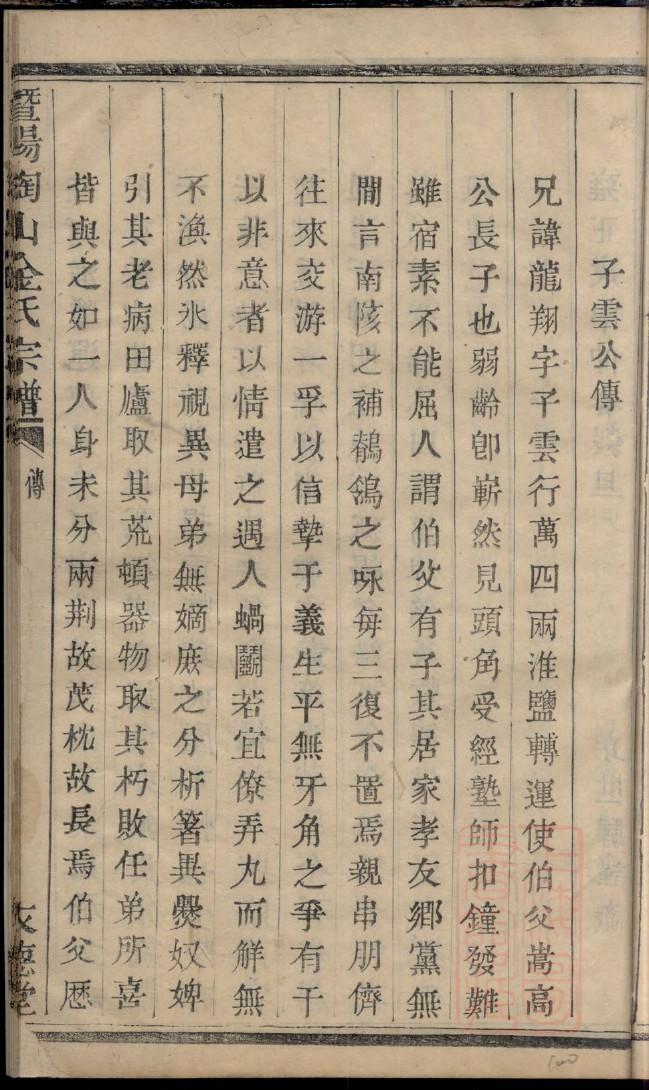 子雲公傳
兄諱龍翔字子雲行萬四兩淮鹽轉運使伯父嵩高
公長子也弱齡卽嶄然見頭角受經塾師扣鐘發難
雖宿素不能屈人謂伯父有子其居家孝友鄉黨無
間言南陔之補鶺鴒之咏每三復不置焉親串朋儕
往來交游一孚以信摯于義生平無牙角之爭有干
以非意者以情遣之遇人蝸鬭若宜僚弄丸而觧無
不渙然氷釋視異母弟無嫡庶之分析箸異爨奴婢
引其老病田廬取其荒頓器物取其朽敗任弟所喜
皆與之如一人身未分兩荆故茂枕故長焉伯父歷
暨陽陶山金氏宗譜
傳
友德堂
100